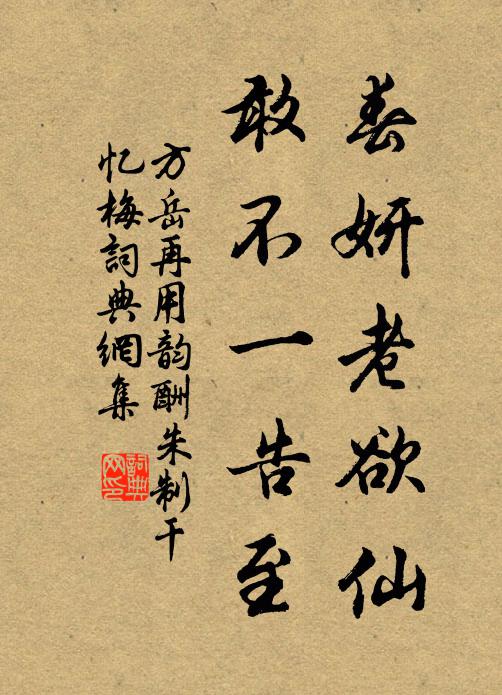 春妍老欲仙
敢不一告至
方岳再用韵酬朱制干
忆梅詞典網集
詞典网印